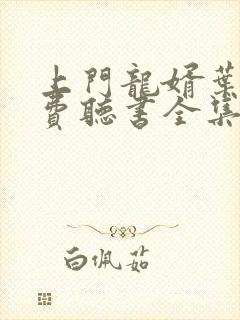 上門龍婿葉
費聽書全集
白佩茹